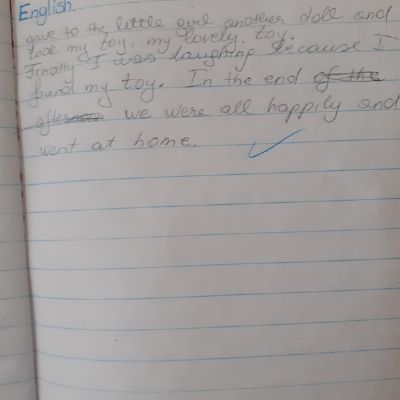 English.
gave to the little girl another doll and
took my toy, my lovely toy.
Finally I was laughing because I
found my toy. In the end of the
after we were all happily and
went at home.